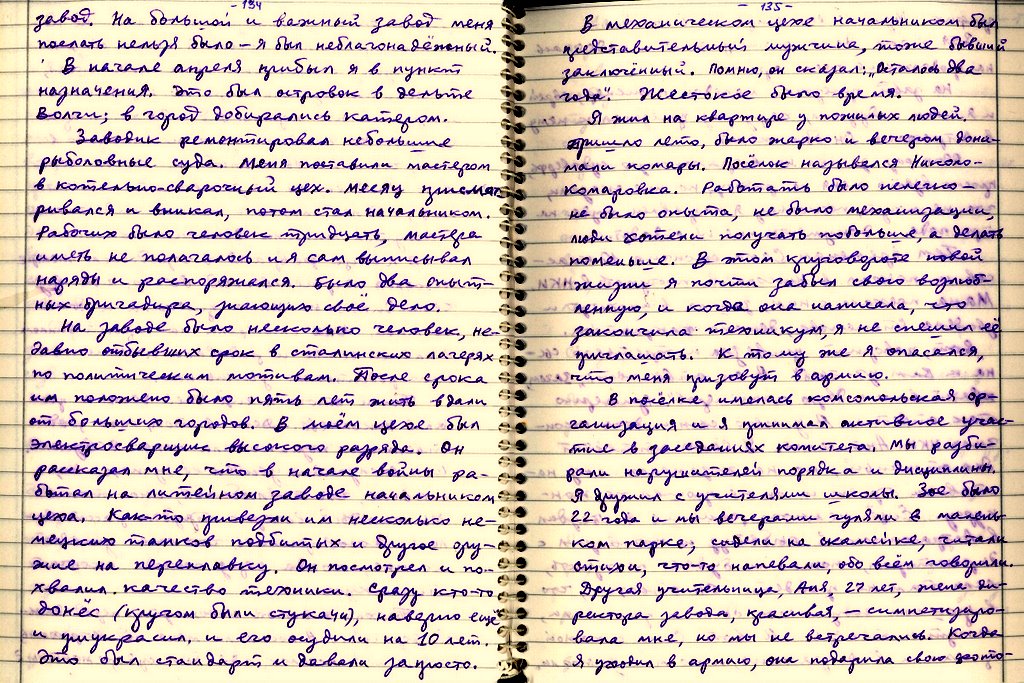 - 134 -
завод. На большой и важный завод меня
послать нельзя было – я был неблагонадёжный.
В начале апреля прибыл я в пункт
назначения. Это был островок в дельте
Волги; в город добирались катером.
Заводик ремонтировал небольшие
рыболовные суда. Меня поставили мастером
в котельно-сварочный цех. Месяц присмат
ривался и вникал, потом стал начальником.
Рабочих было человек тридцать, мастера
иметь не полагалось и я сам выписывал
наряды и распоряжался. Было два опыт-
ных бригадира, знающих своё дело.
На заводе было несколько человек, не-
давно отбывших срок в сталинских лагерях
по политическим мотивам. После срока
им положено было пять лет жить вдали
от больших городов. В моём цехе был
электросварщик высокого разряда. Он
рассказал мне, что в начале войны ра-
ботал на литейном заводе начальником
цеха. Как-то привезли им несколько не-
мецких танков подбитых и другое ору-
жие на переплавку. Он посмотрел и по-
хвалил качество техники. Сразу кто-то
донёс (кругом были стукачи), наверно ещё
и приукрасил, и его осудили на 10 лет.
Это был стандарт и давали запросто.
- 135 -
В механическом цехе начальником был
представительный мужчина, тоже бывший
заключённый. Помню, он сказал: „Осталось два
года". Жестокое было время.
Я жил на квартире у пожилых людей,
пришло лето, было жарко и вечером дони-
мали комары. Посёлок назывался Николо-
Комаровка. Работать было нелегко –
не было опыта, не было механизации,
люди хотели получать побольше, а делать
поменьше. В этом круговороте новой
жизни я почти забыл свою возлюб-
ленную, и когда она написала, что
закончила техникум, я не спешил её
приглашать. К тому же я опасался,
что меня призовут в армию.
В посёлке имелась комсомольская ор-
ганизация и я принимал активное учас-
тие в заседаниях комитета. Мы разби-
рали нарушителей порядка и дисциплины.
Я дружил с учителями школы. Зое было
22 года и мы вечерами гуляли в малень-
ком парке; сидели на скамейке, читали
стихи, что-то напевали, обо всём говорили.
Другая учительница, Аня, 27 лет, жена ди-
ректора завода, красивая, – симпатизиро-
вала мне, но мы не встречались. Когда
я уходил в армию, она подарила свою фото-